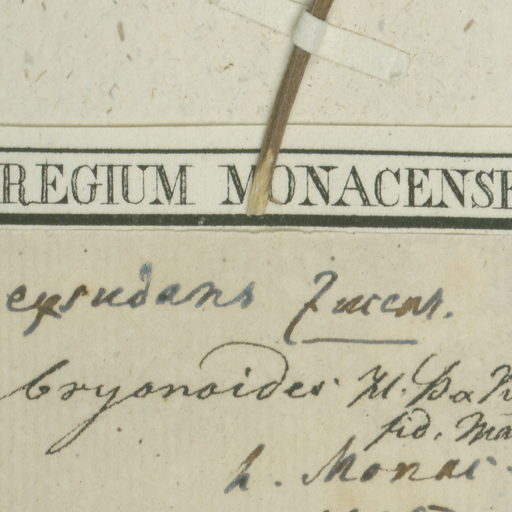 REGIUM MONACENSE
exsudans Zuccar.
bryonoides Hl.
fid.
h. Monac.